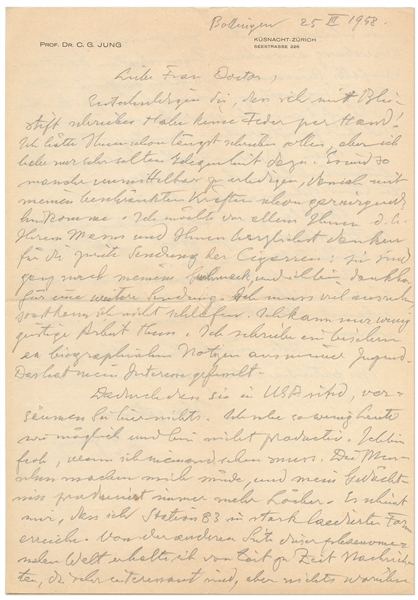 Bollingen 25 III 1958.
PROF. DR. C. G. JUNG
KÜSNACHT-ZÜRICH
SEESTRASSE 228
Liebe Frau Doctor,
Entschuldigen Sie, dass ich mit Blei-
stift schreibe. Habe keine Feder per Hand!
Ich hätte Ihnen schon längst schreiben sollen, aber ich
habe nur sehr selten Gelegenheit dazu. Es sind so
manche unmittelbar zu erledigen, dass ich mit
meinen beschränkten Kräften schon gar nirgends
hinkomme. Ich möchte vor allem Ihnen d. h.
Ihrem Mann und Ihnen herzlichst danken
für die gute Sendung der Cigarren: sie sind
ganz nach meinem Geschmack und ich bin dankbar
für eine weitere Sendung. Ich muss viel ausruhen
sonst kann ich nicht schlafen. Ich kann nur wenig
geistige Arbeit thun. Ich schreibe ein bischen
an biographischen Notizen aus meiner Jugend.
Das hat mein Interesse gefesselt.
Dadurch dass sie in USA sind, ver-
säumen Sie hier nichts. Ich sehe so wenig Leute
wie möglich und bin nicht productiv. Ich bin
froh, wenn ich niemand sehen muss. Die Men-
schen machen mich müde, und mein Gedächt-
niss produciert immer mehr Löcher. Es scheint
mir, dass ich Station 83 in stark laedierter Form
erreiche. Von der anderen Seite dieser phaenome-
nalen Welt erhalte ich von Zeit zu Zeit Nachrich-
ten, die sehr interessant sind, aber nichts